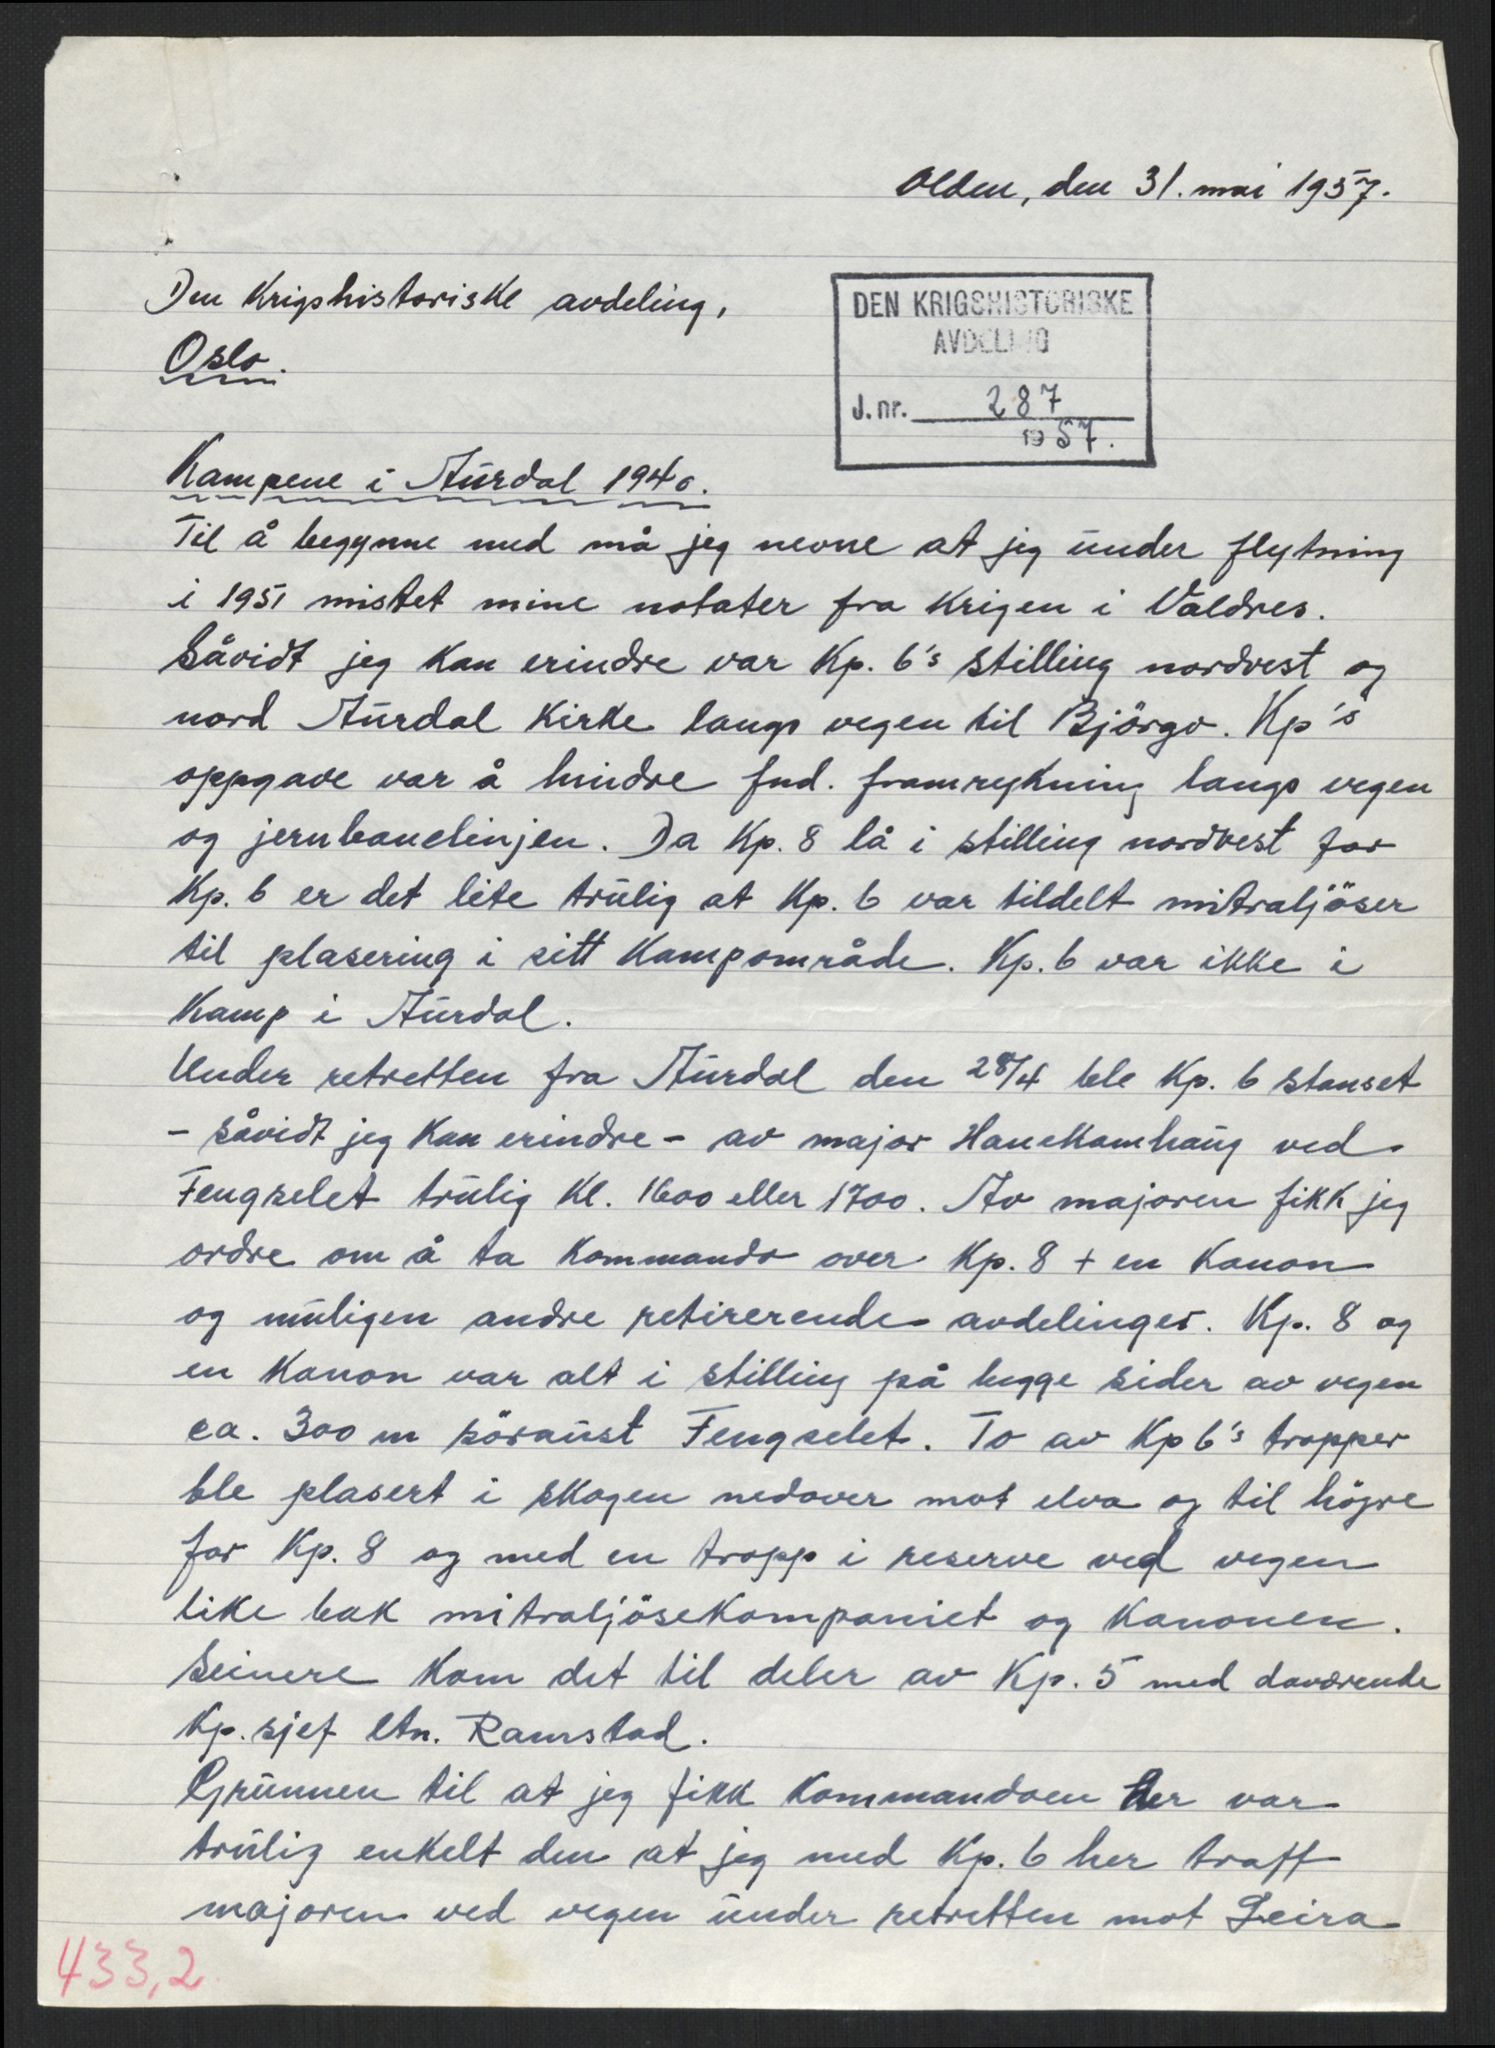 Olden, den 31. mai 1957.
Den Krigshistoriske avdeling,
Oslo.
DEN KRIGSHISTORISKE
AVDELING
J. nr. 287
1957.
Kampene i Aurdal 1940.
Til å begynne med må jeg nevne at jeg under flytning
i 1951 mistet mine notater fra Krigen i Valdres.
Såvidt jeg kan erindre var Kp. 6's stilling nordvest og
nord Aurdal Kirke langs vegen til Björgo. Kp's
oppgave var å hindre fnd. framrykning langs vegen
og jernbanelinjen. Da Kp. 8 lå i stilling nordvest for
Kp. 6 er det lite trulig at Kp. 6 var tildelt mitraljöser
til plasering i sitt Kampområde. Kp. 6 var ikke i
Kamp i Aurdal.
Under retretten fra Aurdal den 28/4 ble Kp. 6 stanset
- såvidt jeg kan erindre - av major Hanekamhaug ved
Fengselet trulig kl. 1600 eller 1700. Av majoren fikk jeg
ordre om å ta Kommando over Kp. 8 + en Kanon
og muligen andre retirerende avdelinger. Kp. 8 og
en Kanon var alt i stilling på begge sider av vegen
ca. 300 m söraust Fengselet. To av Kp 6's tropper
ble plasert i skogen nedover mot elva og til högre
for Kp. 8 og med en tropp i reserve ved vegen
like bak mitraljösekompaniet og Kanonen.
Seinere kom det til deler av Kp. 5 med daværende
Kp. sjef ltn. Ramstad.
Grunnen til at jeg fikk Kommandoen her var
trulig enkelt den at jeg med Kp. 6 her traff
majoren ved vegen under retretten mot Leira
433,2